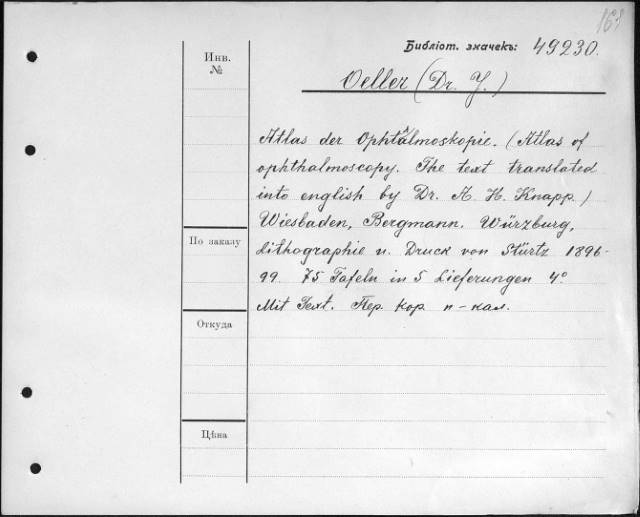 168
Библіот. значекъ: 49230.
Инв.
№
Oeller (Dr. J.)
Atlas der Ophthalmoskopie. (Atlas of
ophthalmoscopy. The text translated
into english by Dr. A. H. Knapp.)
Wiesbaden, Bergmann. Würzburg,
Lithographie u. Druck von Stürtz 1896-
99. 75 Tafeln in 5 Lieferungen 4°
Mit Text. Пер. кор. п-кал.
По заказу
Откуда
Цѣна